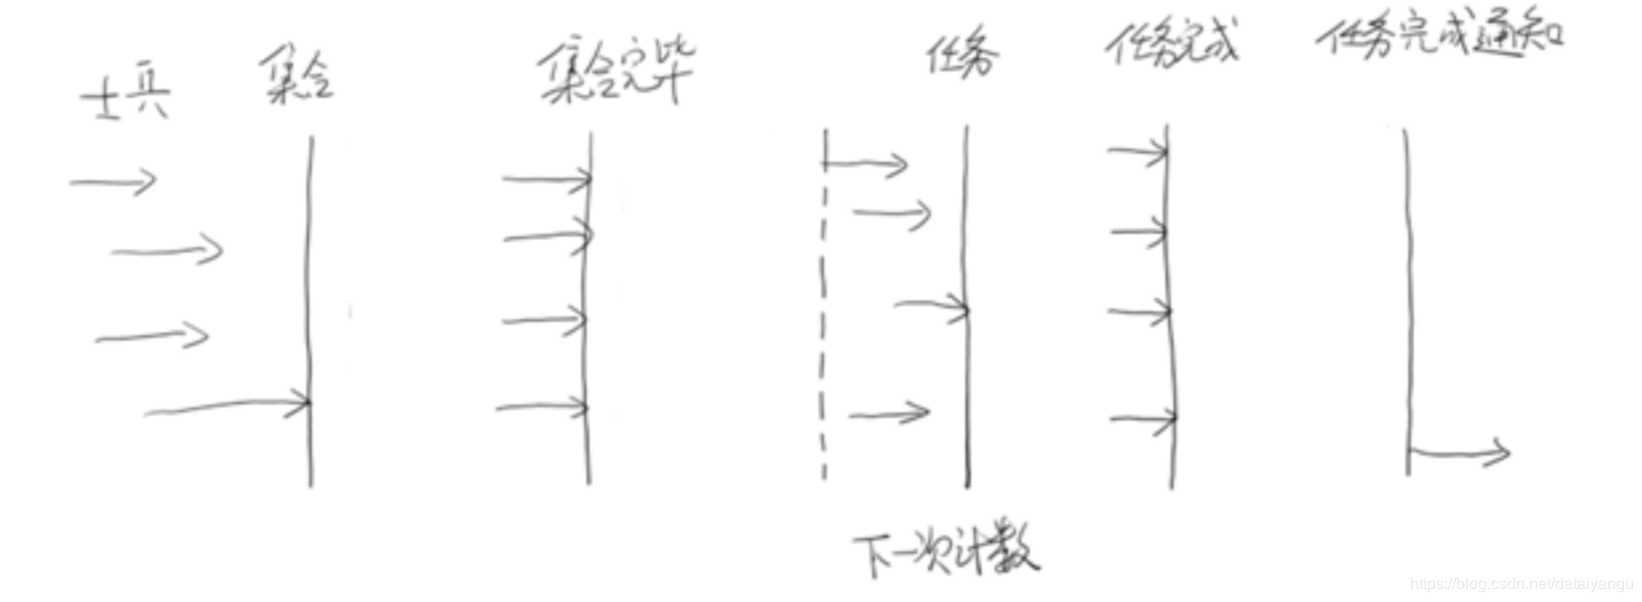 士兵
集合
集合完毕
任务
任务完成
任务完成通知
下一次计数
https://blog.csdn.net/dataiyangu